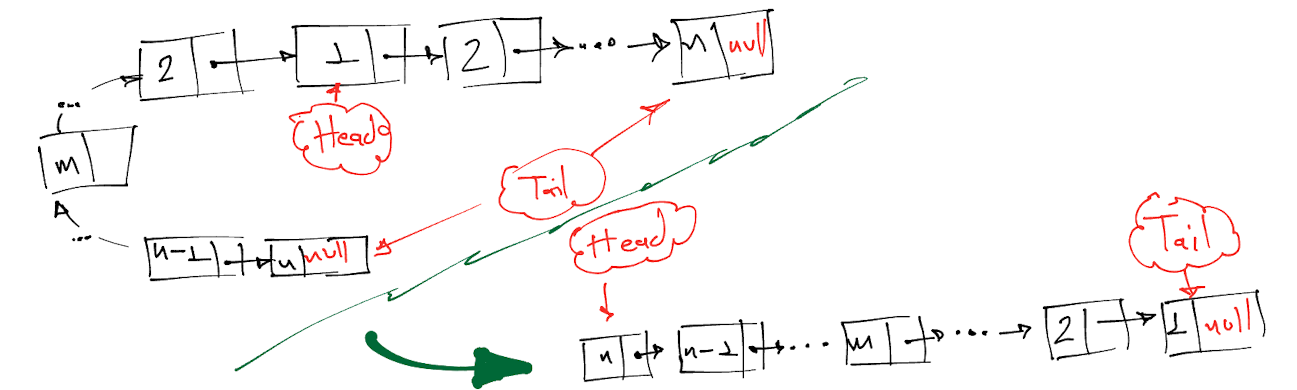 2 1 2 ... n null
...
Head
m
Tail
...
n-1 n null
Head
Tail
n n-1 ... m ... 2 1 null